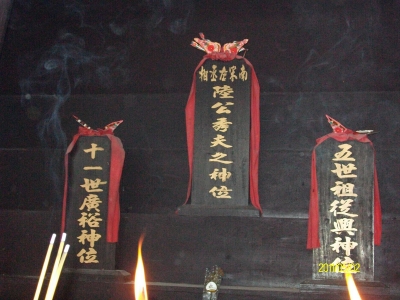 五世祖從興神位
南宋左丞相
陸公秀夫之神位
十一世廣裕神位